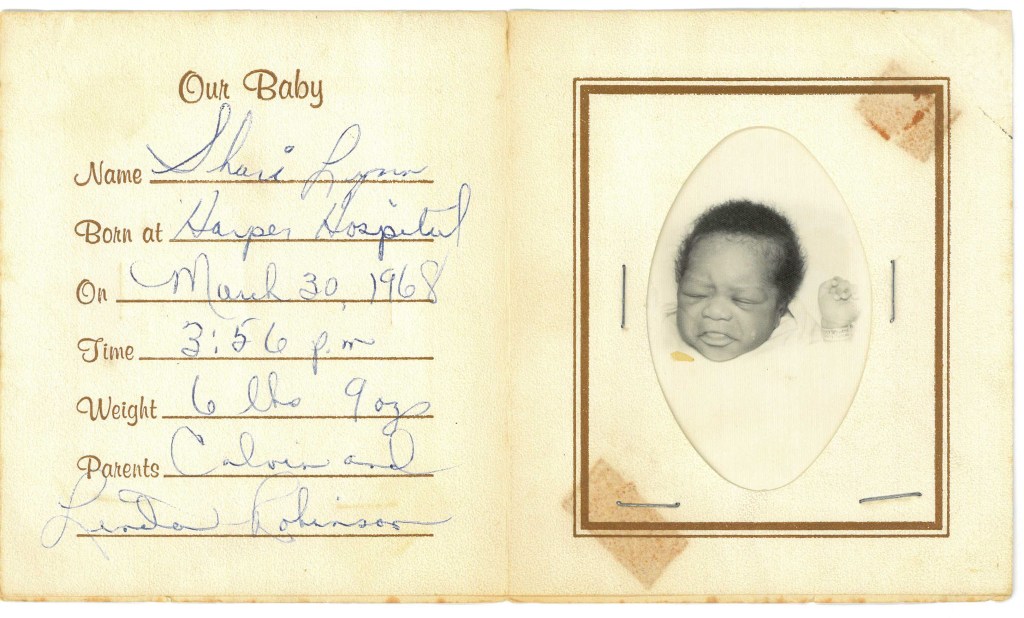 Our Baby
Name Shari Lynn
Born at Harper Hospital
On March 30, 1968
Time 3:56 p.m
Weight 6 lbs 9 ozs
Parents Calvin and
Linda Robinson